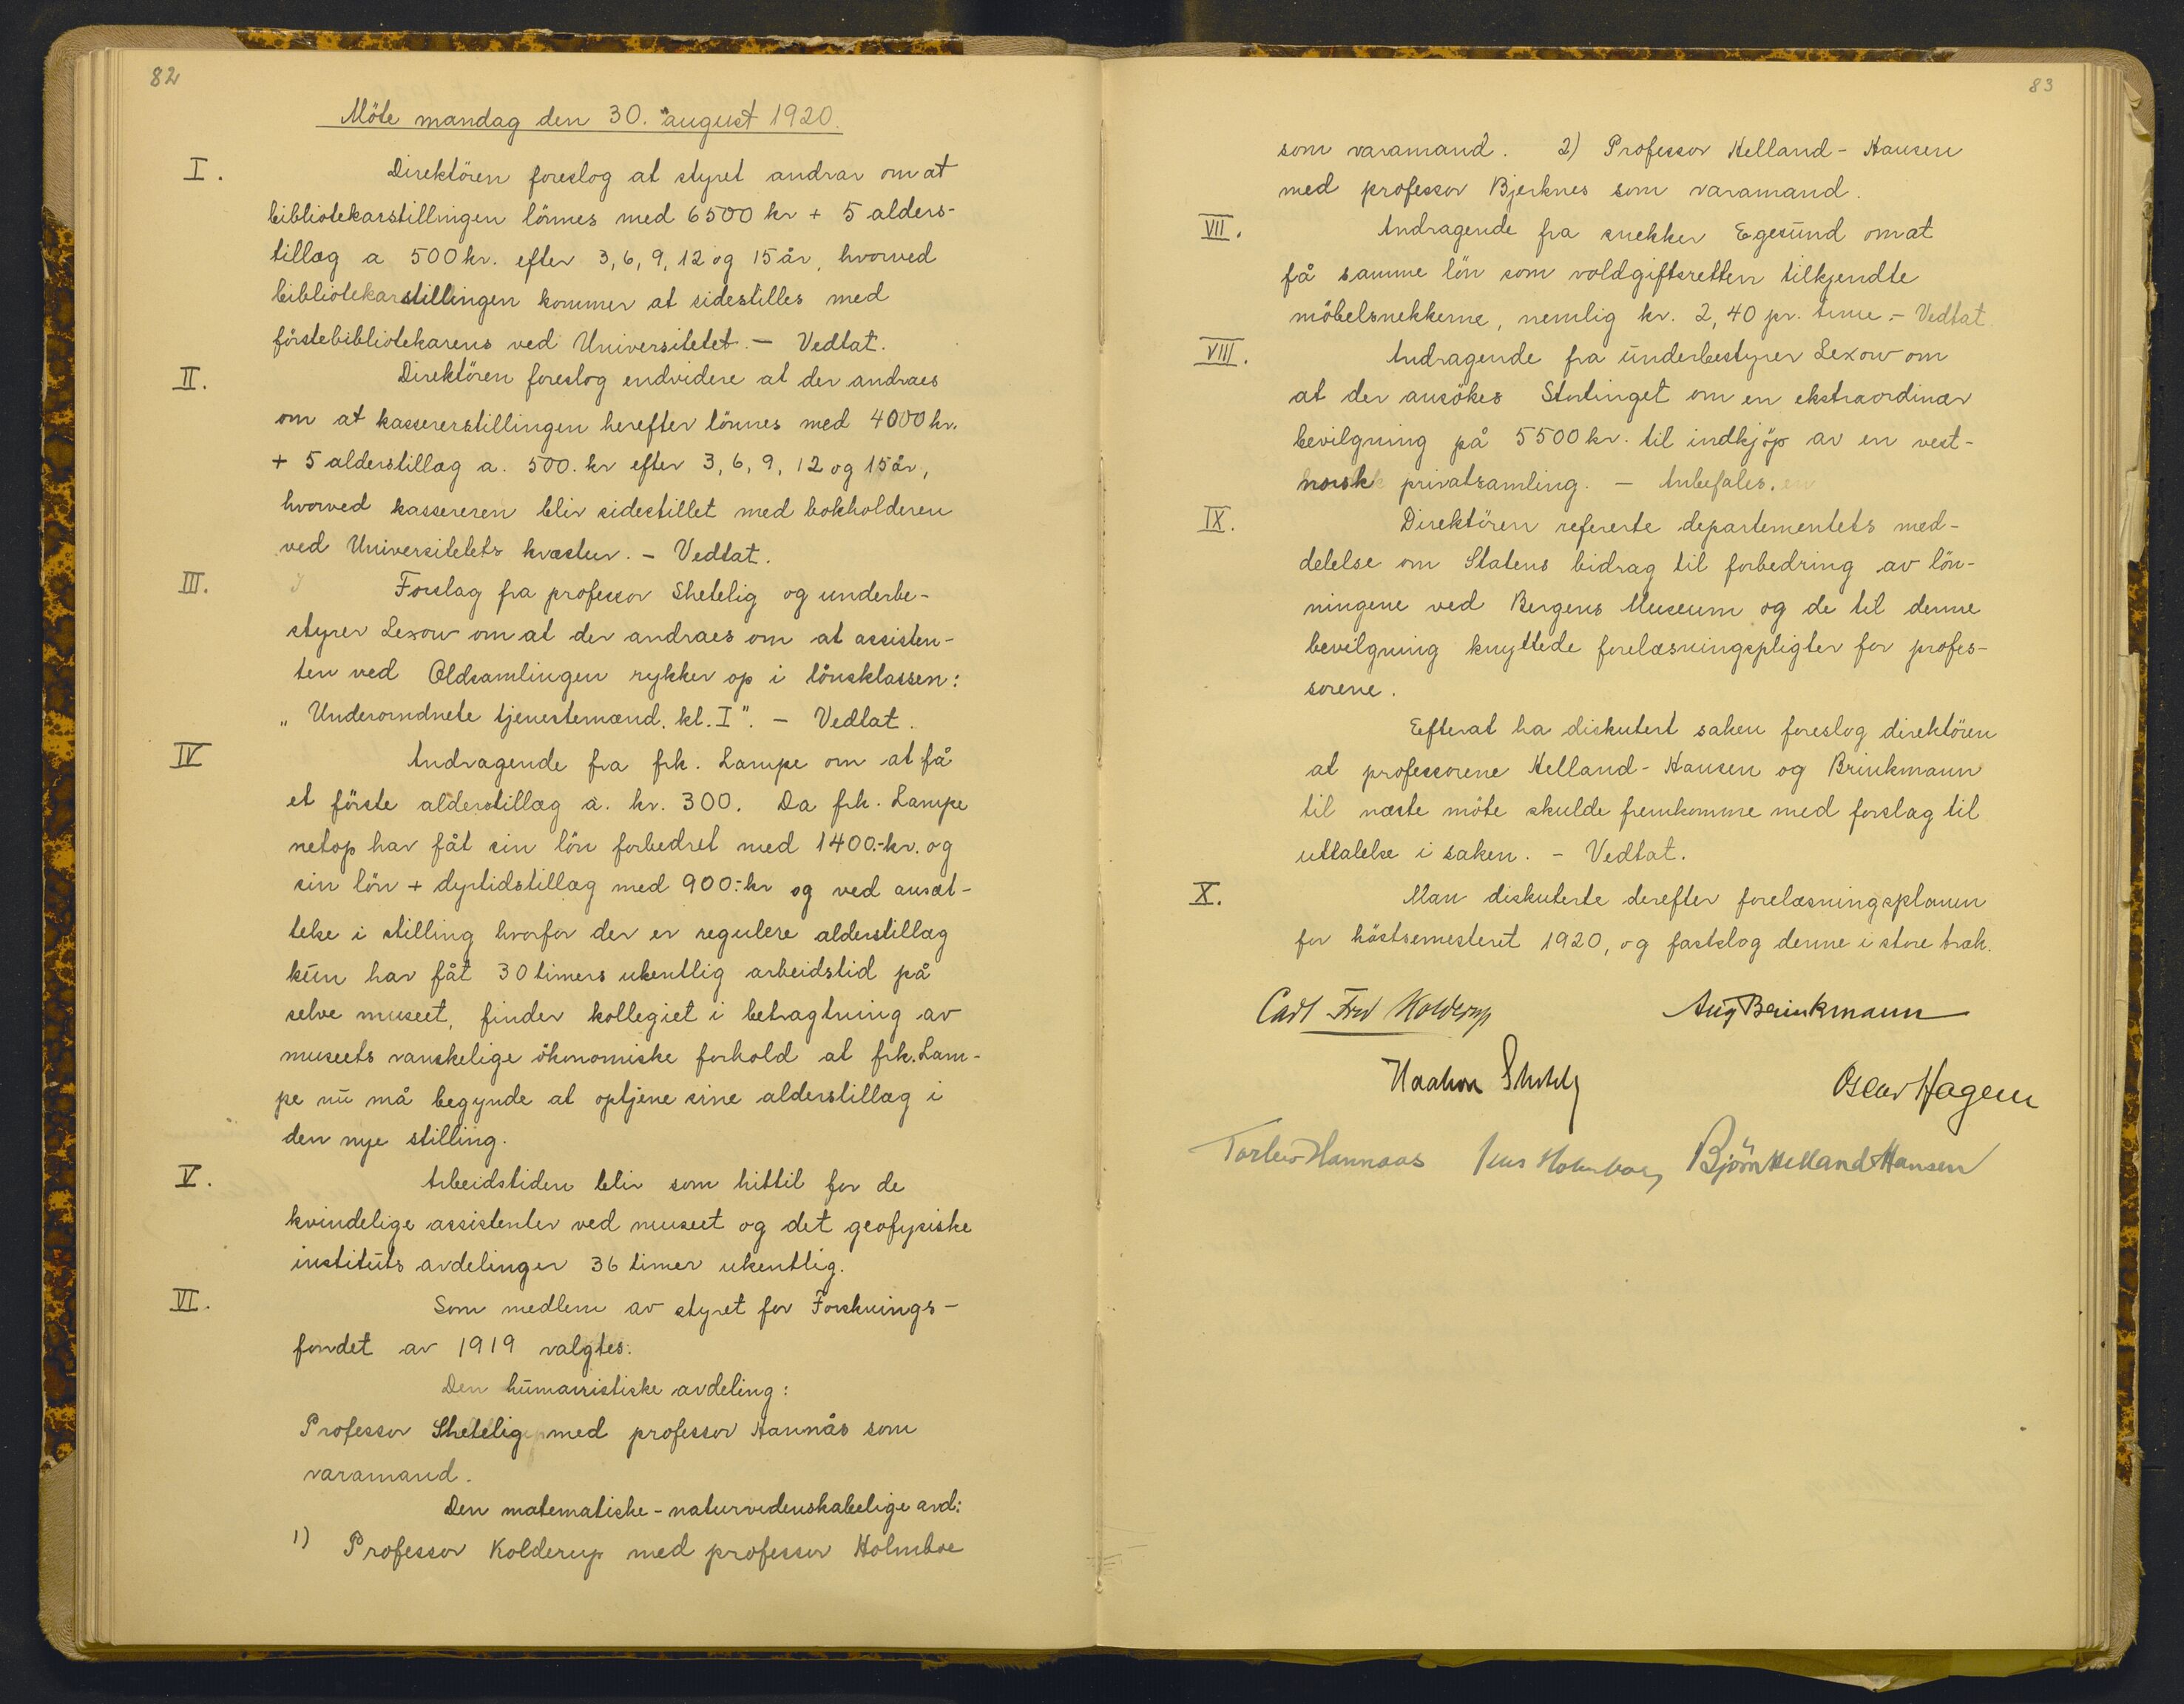 82
Möte mandag den 30. august 1920.
I. Direktören foreslog at styret andrar om at
bibliotekarstillingen lönnes med 6500 kr + 5 alders-
tillæg a 500 kr. efter 3, 6, 9, 12 og 15 år, hvorved
bibliotekarstillingen kommer at sidestilles med
förstebibliotekarens ved Universitetet. — Vedtat.
II. Direktören foreslog endvidere at der andraes
om at kassererstillingen herefter lönnes med 4000 kr.
+ 5 alderstillæg a. 500. kr efter 3, 6, 9, 12 og 15 år,
hvorved kassereren blir sidestillet med bokholderen
ved Universitetets kvæstur. — Vedtat.
III. Forslag fra professor Shetelig og underbe-
styrer Lexow om at der andraes om at assisten-
ten ved Oldsamlingen rykker op i lönsklassen:
„Underordnete tjenestemænd. kl. I". — Vedtat.
IV Andragende fra frk. Lampe om at få
et förste alderstillæg a. kr. 300. Da frk. Lampe
netop har fåt sin lön forbedret med 1400.- kr. og
sin lön + dyrtidstillæg med 900:- kr og ved ansæt-
telse i stilling hvorfor der er regulere alderstillæg
kun har fåt 30 timers ukentlig arbeidstid på
selve museet, finder kollegiet i betragtning av
museets vanskelige ökonomiske forhold at frk. Lam-
pe nu må begynde at optjene sine alderstillæg i
den nye stilling.
V. Arbeidstiden blir som hittil for de
kvindelige assistenter ved museet og det geofysiske
instituts avdelinger 36 timer ukentlig.
VI. Som medlem av styret for Forsknings-
fondet av 1919 valgtes:
Den humanistiske avdeling:
Professor Shetelig med professor Hannås som
varamand.
Den matematiske - naturvidenskabelige avd:
1) Professor Kolderup med professor Holmboe
83
som varamand. 2) Professor Helland - Hansen
med professor Bjerknes som varamand.
VII. Andragende fra snekker Egesund om at
få samme lön som voldgiftsretten tilkjendte
möbelsnekkerne, nemlig kr. 2,40 pr. time. — Vedtat.
VIII. Andragende fra underbestyrer Lexow om
at der ansökes Stortinget om en ekstraordinær
bevilgning på 5500 kr. til indkjöp av en vest-
norsk privatsamling. — Anbefales.
IX. Direktören refererte departementets med-
delelse om Statens bidrag til forbedring av lön-
ningene ved Bergens Museum og de til denne
bevilgning knyttede forelæsningspligter for profes-
sorene.
Efterat ha diskutert saken foreslog direktören
at professorene Helland - Hansen og Brinkmann
til næste möte skulde fremkomme med forslag til
uttalelse i saken. — Vedtat.
X. Man diskuterte derefter forelæsningsplanen
for höstsemesteret 1920, og fastslog denne i store træk.
Carl Fred Kolderup Aug Brinkmann
Haakon Shetelig Oscar Hagem
Torleiv Hannaas Jens Holmboe Björn Helland Hansen